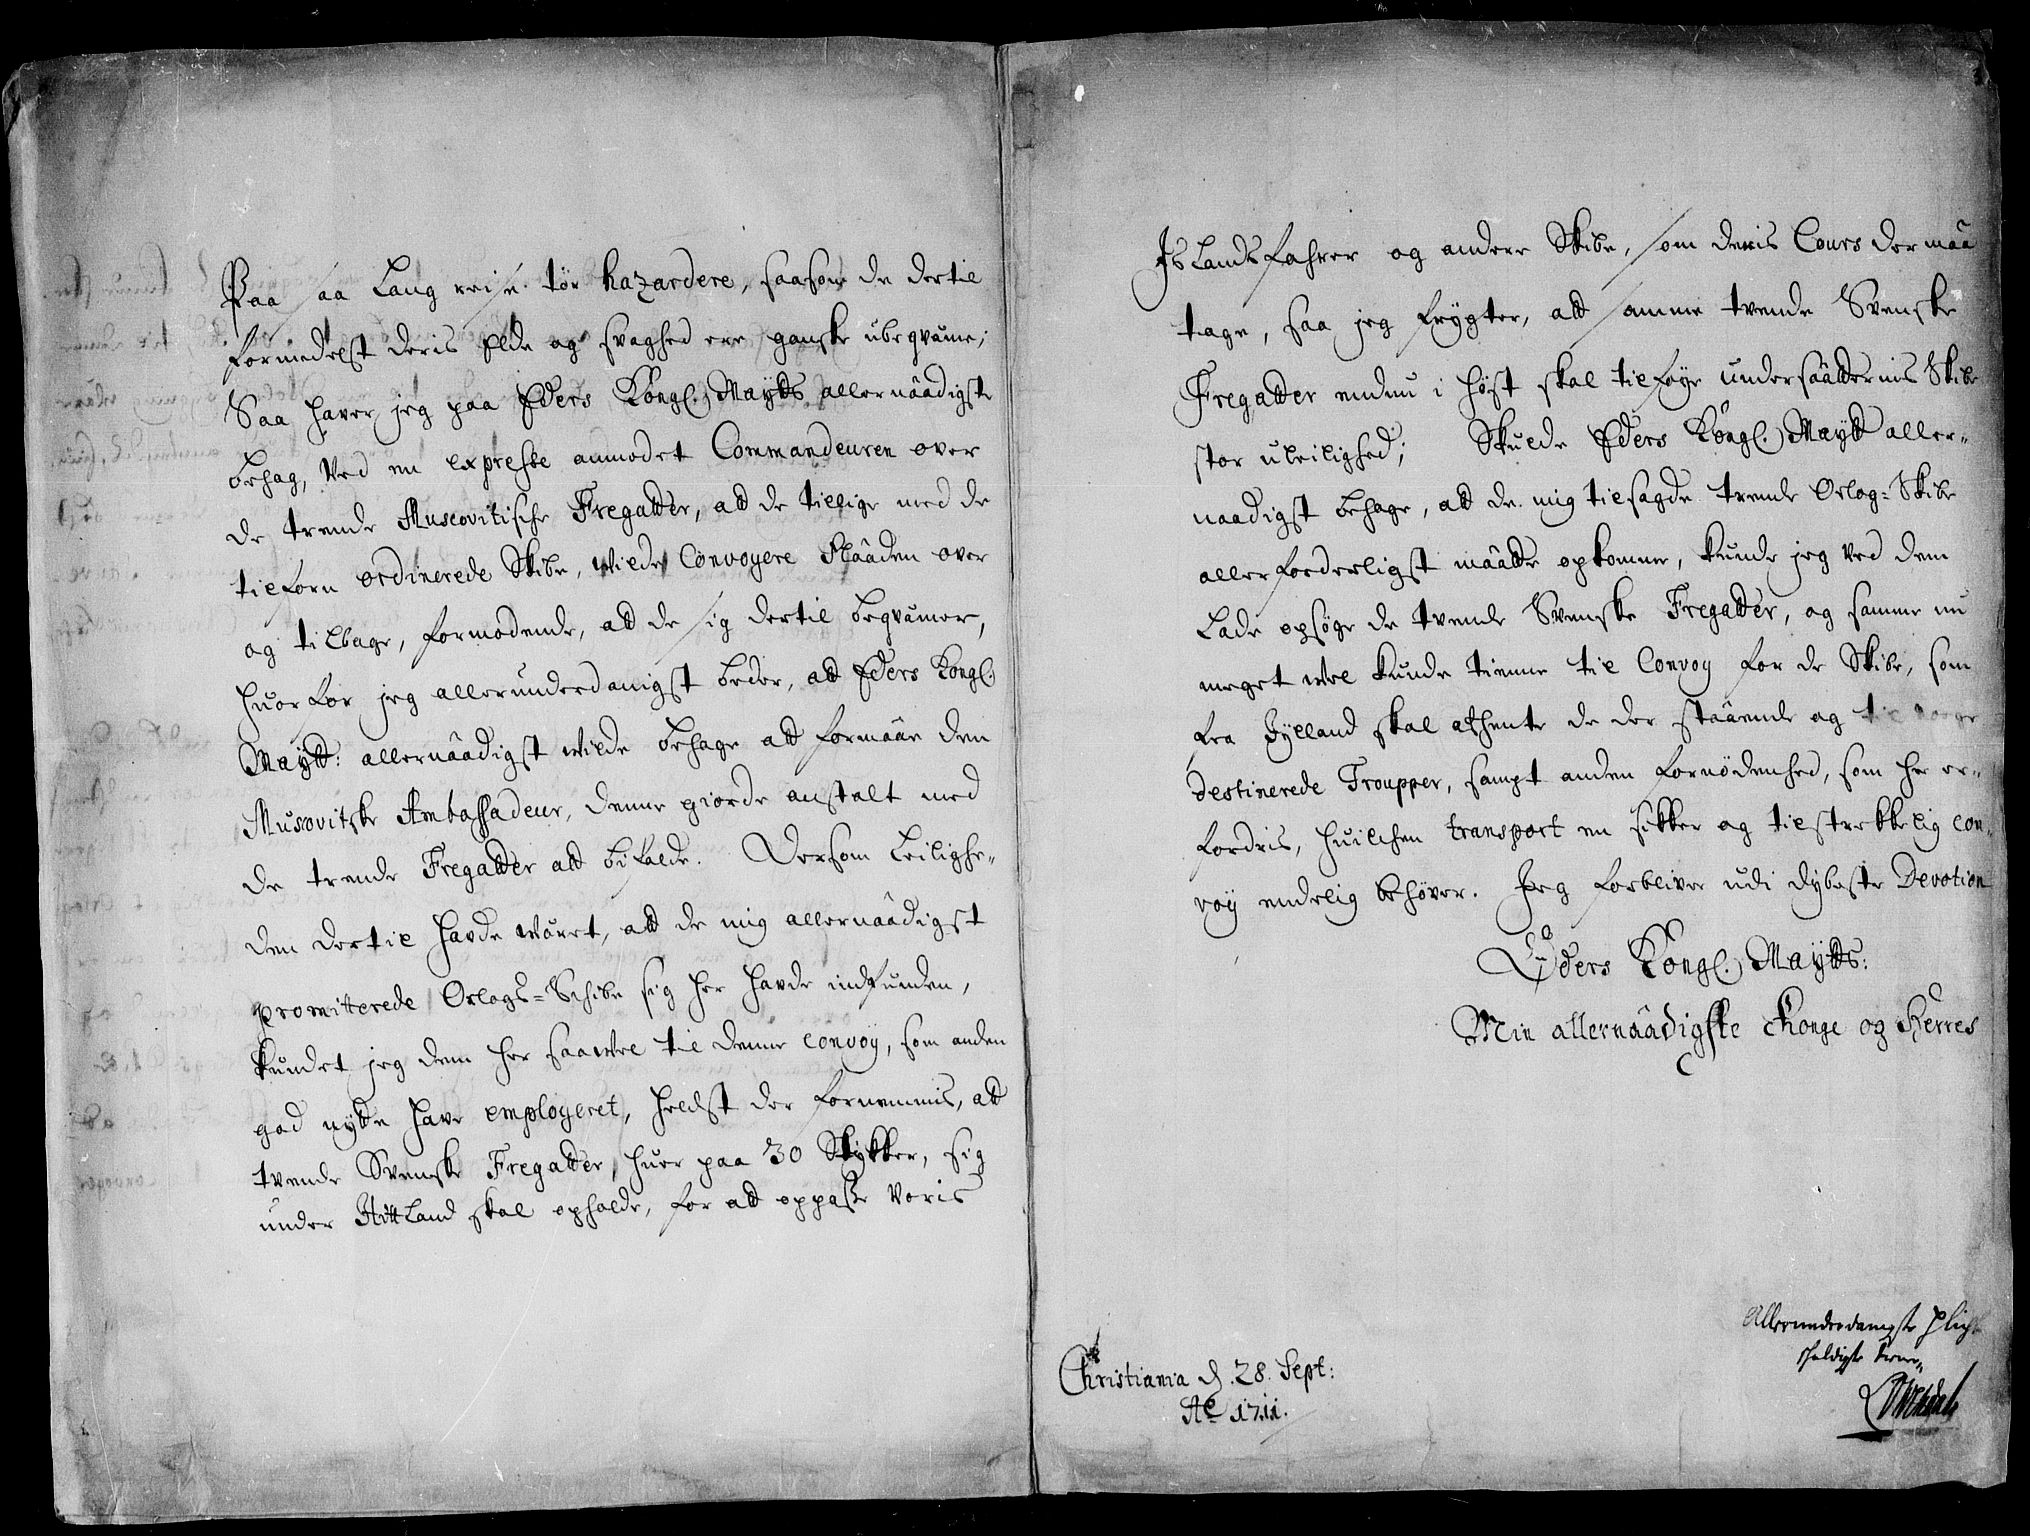 Paa saa Lang reise tør hazardere, saasom de dertil
formedelst deris Elde og svaghed ere ganske ubeqvæme;
Saa hafver jeg paa Eders Kongl. Maytts allernäadigste
behag, Ved en expresse anmodet Commandeuren over
de trende Muscovitische Fregatter, att de tillige med de
tilforn ordinerede Skibe, wilde Convoyere Flaaden over
og tilbage, formodende, att de sig dertil beqvämer,
huorfor jeg allerunderdanigst beder, att Eders Kongl.
Maytt: allernäadigst wilde behage att formäae den
Muscovitske Ambassadeur, denne giorde anstalt med
de trende Fregatter att bifalde. Dersom Leilighe-
den dertil hafde wäret, att de mig allernäadigst
promitterede Orlogs-Schibe sig her hafde indfunden,
kundet jeg dem her saawel til denne convoy, som anden
god nytte hafve employeret, heldst der fornemmis, att
tvende Svenske Fregatter, huer paa 30 Stykker, sig
under Hittland skal opholde, for att oppasse Voris
Islandsfahrer og andere Skibe, som deris Cours der maa
tage, saa jeg frygter, att samme tvende Svenske
Fregatter endnu i høst skal tilføye undersaatternis Skibe
stor uleilighed; Skulde Eders Kongl. Maytt aller-
naadigst behage, att de mig tilsagde trende Orlog-Skibe
allerforderligst maatte opkomme, kunde jeg ved dem
Lade opsøge de tvende Svenske Fregatter, og samme nu
meget wel kunde tienne til Convoy for de Skibe, som
fra Jylland skal afhente de der staaende og til Norge
destinerede Troupper, sampt anden fornødenhed, som her er-
fordris, huilchen transport en sikker og tilstrekkelig con-
voy endelig behøver. Jeg forbliver udi dybeste Devotion
Eders Kongl. Maytts:
Min allernäadigste Konge og Herres
Christiania d. 28. Sept:
Ao 1711.
Allerunderdanigste Pligt
skyldigste tiener